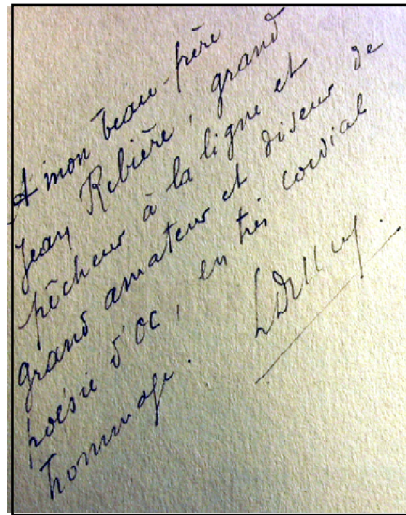 A mon beau-frère
Jean Rebière, grand
pêcheur à la ligne et
grand amateur et diseur de
poésie d'oc, en très cordial
hommage.